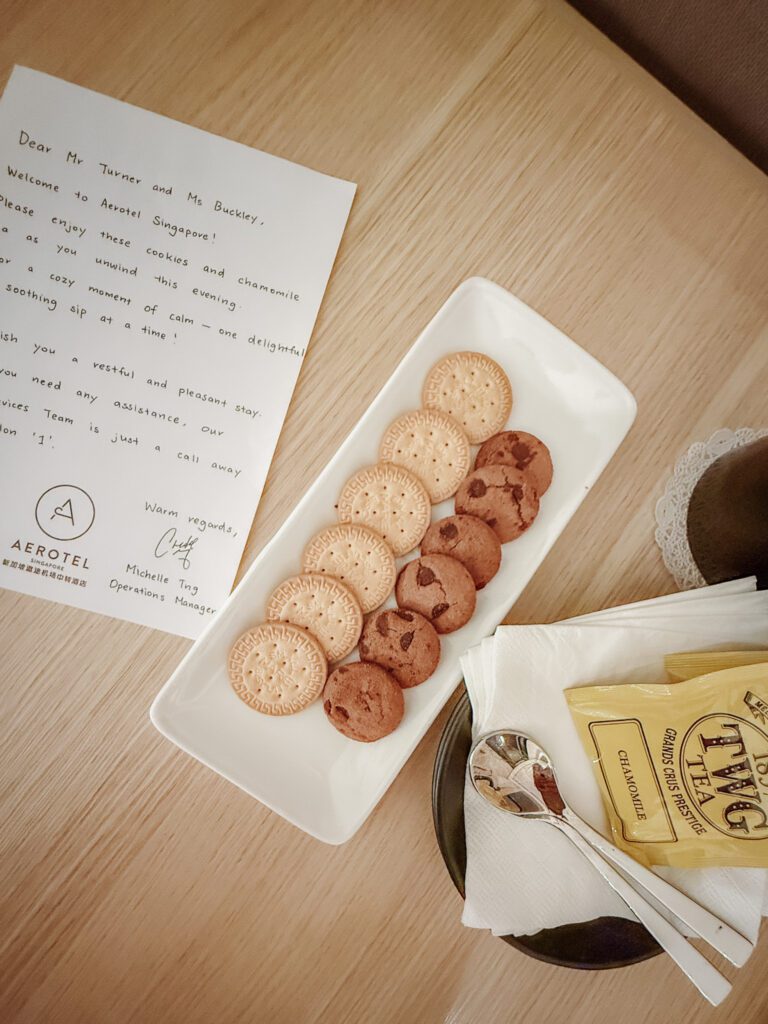 Dear Mr Turner and Ms Buckley,
Welcome to Aerotel Singapore!
Please enjoy these cookies and chamomile
as you unwind this evening.
a cozy moment of calm — one delightful
soothing sip at a time!
you a restful and pleasant stay.
you need any assistance, our
Team is just a call away
'1'.
Warm regards,
Michelle Tng
Operations Manager
AEROTEL
SINGAPORE
新加坡遨途机场中转酒店
CHAMOMILE
GRANDS CRUS PRESTIGE
TWG
TEA